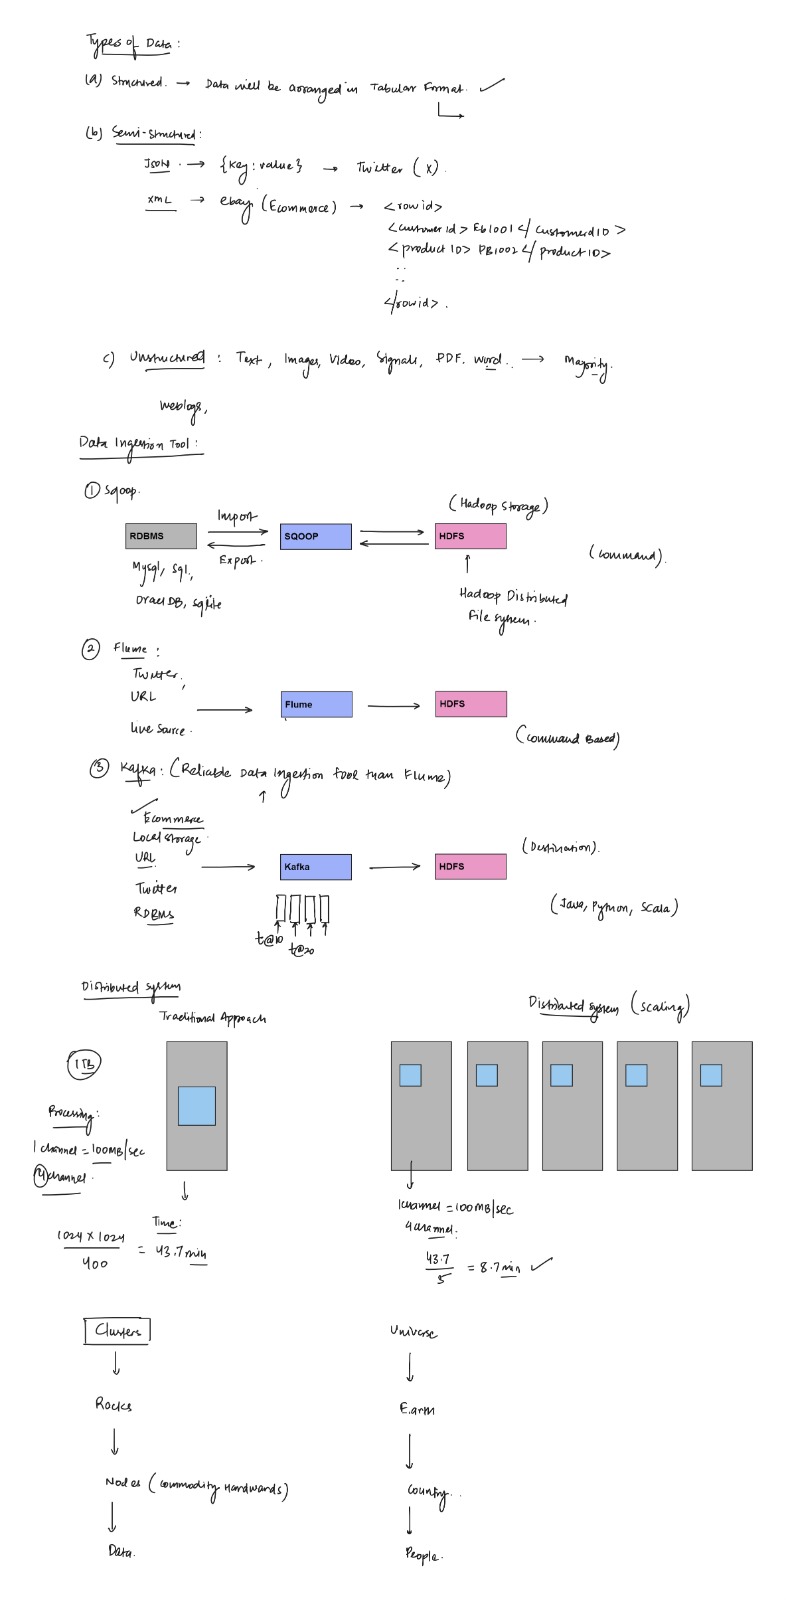 Types of Data :
(a) Structured. → Data will be arranged in Tabular Format. ✓
(b) Semi-Structured :
JSON . → {key : value} → Twitter (X) .
XML → ebay (Ecommerce) → <rowid>
<customer id> EB1001 </ customerdID >
<product ID> PB1002 </ product ID>
: :
: .
</rowid> .
c) Unstructured : Text, Images, Video, Signals, PDF. Word . → Majority.
Weblogs,
Data Ingestion Tool :
① Sqoop.
(Hadoop Storage)
Import
RDBMS SQOOP HDFS
Export .
(Command).
Mysql, Sql,
OraclDB, sqlite
Hadoop Distributed
File system .
② Flume :
Twitter,
URL
Flume HDFS
Live Source .
(Command Based)
③ Kafka : (Reliable Data Ingestion tool than Flume)
✓ Ecommerce
Local storage
URL
(Destination).
Kafka HDFS
Twitter
RDBMS
(Java, Python, Scala)
t@10
t@20
Distributed System
Traditional Approach
Distributed System (Scaling)
1TB
Processing :
1 channel = 100MB/sec
4 channel .
1channel = 100MB/sec
4 channel.
Time :
1024 X 1024
400
= 43.7 min
43.7
5
= 8.7 min ✓
Clusters
Universe
Rocks
Earth
Nodes (Commodity Hardwards)
Country . .
Data.
People .